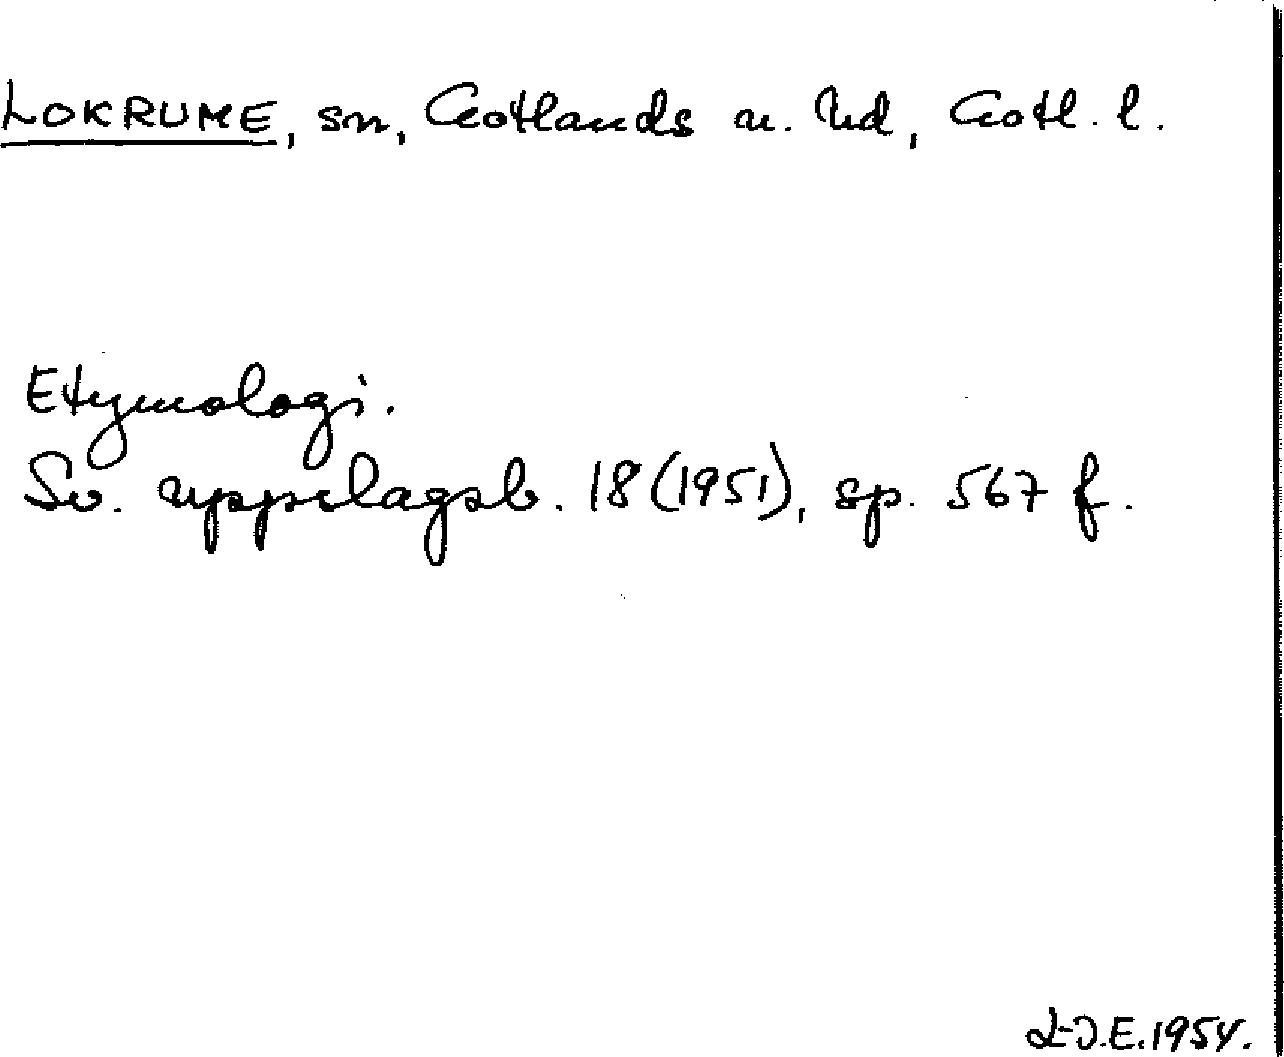 LOKRUME, sn, Gotlands n. hd, Gotl. l.
Etymologi.
Sv. uppslagsb. 18 (1951), sp. 567 f.
L-J.E. 1954.